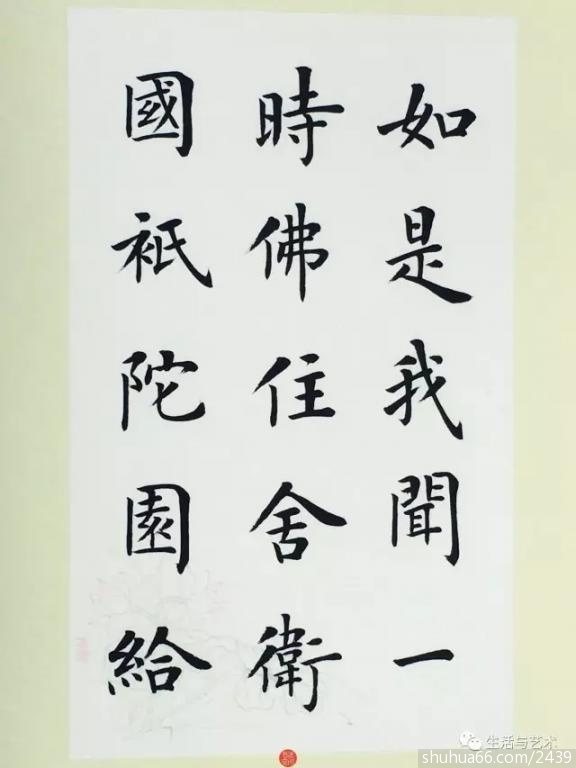 如是我聞一
時佛住舍衛
國祇陀園給
生活与艺术
shuhua66.com/2439